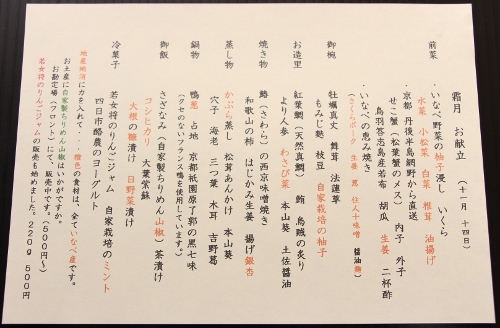 霜月 お献立 (十一月 十四日)
前菜 ・いなべ野菜の柚子浸し いくら
水菜 小松菜 白菜 椎茸 油揚げ
京都 丹後半島網野から直送
せこ蟹(松葉蟹のメス) 内子 外子
鳥羽答志島産若布 胡瓜 生姜 二杯酢
・いなべの恵み焼き
(さくらポーク 生姜 葱 仕入十味噌 醤油麹)
御椀 牡蠣真丈 舞茸 法蓮草
もみじ麩 枝豆 自家栽培の柚子
お造里 紅葉鯛(天然真鯛) 鮪 烏賊の炙り
より人参 わさび菜 本山葵 土佐醤油
焼き物 鰆(さわら)の西京味噌焼き
和歌山の柿 はじかみ生姜 揚げ銀杏
蒸し物 かぶら蒸し 松茸あんかけ 本山葵
穴子 海老 三つ葉 木耳 吉野葛
鍋物 鴨葱 占地 京都祇園原了郭の黒七味
(クセのないフランス鴨を使用しています。)
御飯 さざなみ(自家製ちりめん山椒)茶漬け
コシヒカリ 大葉紫蘇
大根の糠漬け 日野菜漬け
冷菓子 若女将のりんごジャム 自家栽培のミント
四日市酪農のヨーグルト
地産地消に力を入れて・・橙色の食材は、全ていなべ産です。
お土産に自家製ちりめん山椒はいかがですか。
お勘定場(フロント)にて、販売中です。(500円~)
若女将のりんごジャムの販売も始めました。220g 500円